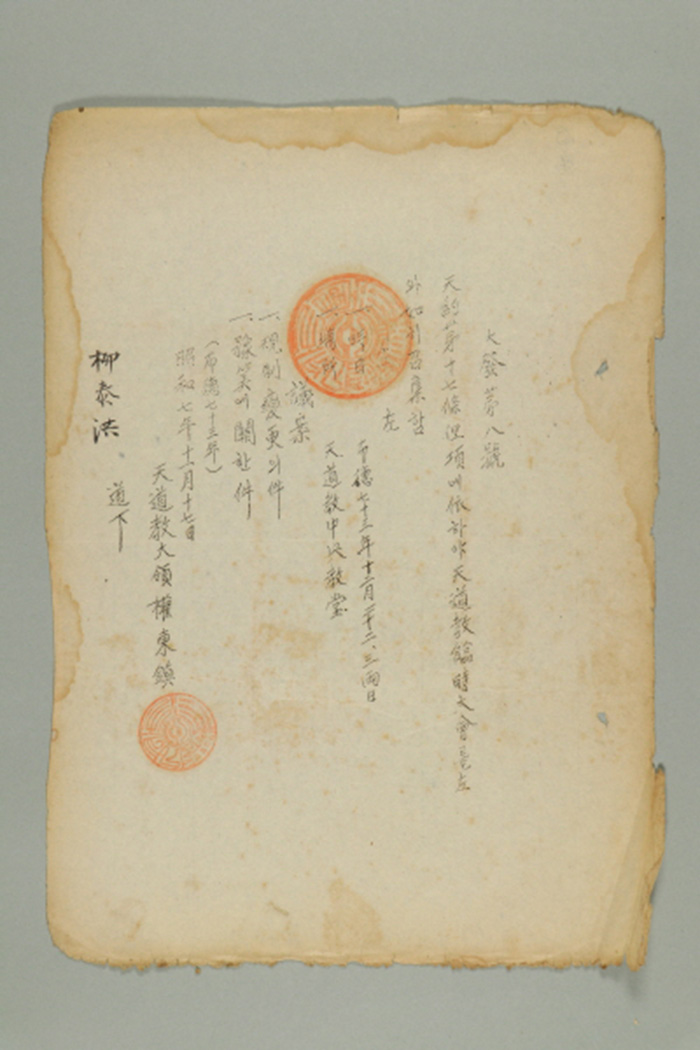 大發第八號
天約第十七條但項에依하야天道敎臨時大會를左
와如히召集함
左
一、時日 布德七十三年十二月二十二、三兩日
一、場所 天道敎中央敎堂
議案
一、規制變更의件
一、豫算에關한件
(布德七十三年)
昭和七年十一月十七日
天道敎大領 權東鎭
柳泰洪 道下